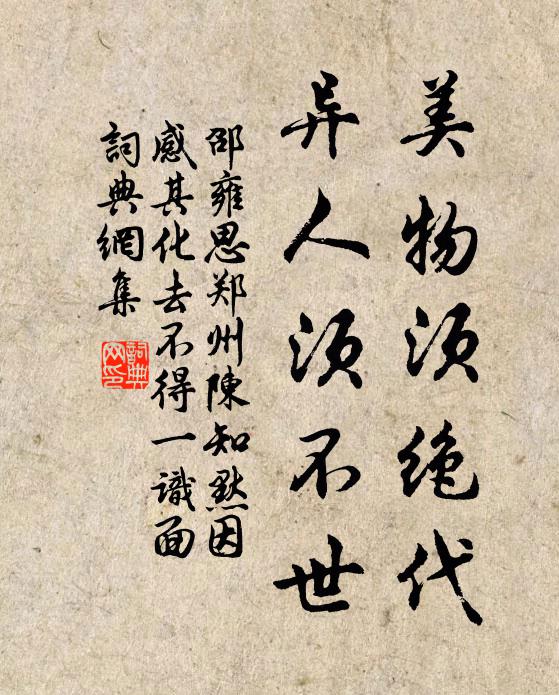 美物须绝代
异人须不世
邵雍思郑州陳知默因
感其化去不得一識面
詞典網集
詞典网印